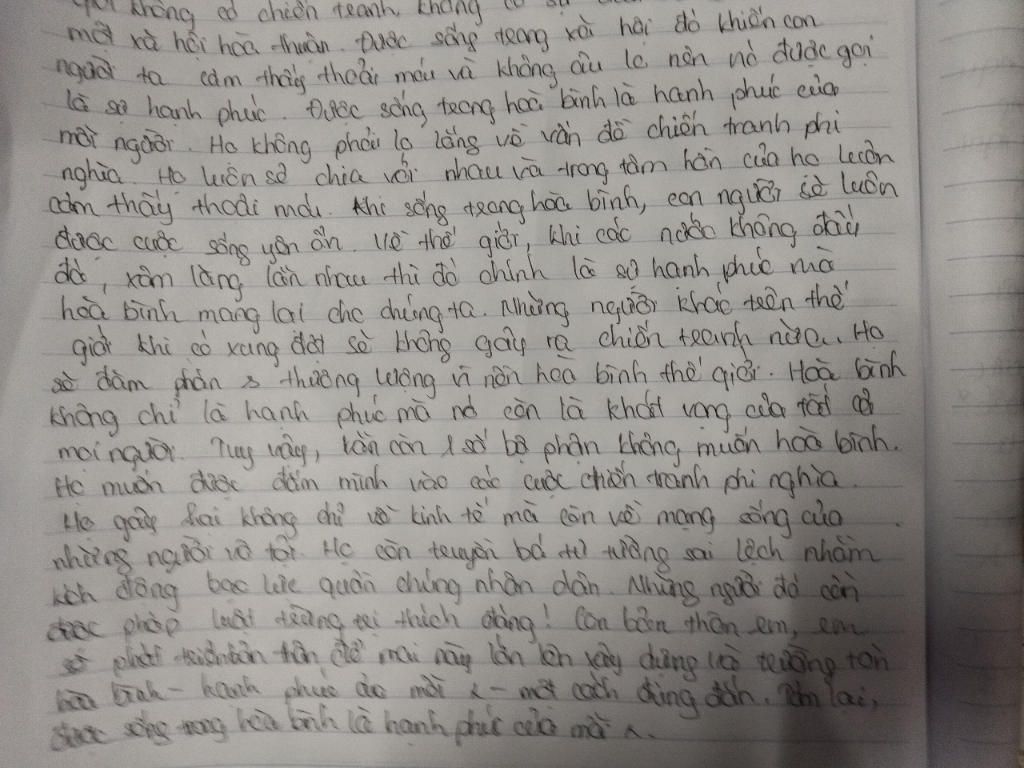 không có chiến tranh, không có sự
một xã hội hòa thuận. Được sống trong xã hội đó khiến con
người ta cảm thấy thoải mái và không âu lo nên nó được gọi
là sự hạnh phúc. Được sống trong hoà bình là hạnh phúc của
mỗi người. Họ không phải lo lắng về vấn đề chiến tranh phi
nghĩa. Họ luôn sẻ chia với nhau và trong tâm hồn của họ luôn
cảm thấy thoải mái. Khi sống trong hòa bình, con người sẽ luôn
được cuộc sống yên ổn. Về thế giới, khi các nước không đấu
đá, xâm lăng lẫn nhau thì đó chính là sự hạnh phúc mà
hoà bình mang lại cho chúng ta. Những người khác trên thế
giới khi có xung đột sẽ không gây ra chiến tranh nữa. Họ
sẽ đàm phán & thương lượng vì nền hòa bình thế giới. Hoà bình
không chỉ là hạnh phúc mà nó còn là khát vọng của tất cả
mọi người. Tuy vậy, vẫn còn 1 số bộ phận không muốn hoà bình.
Họ muốn được đắm mình vào các cuộc chiến tranh phi nghĩa.
Họ gây hại không chỉ về kinh tế mà còn về mạng sống của
những người vô tội. Họ còn truyền bá tư tưởng sai lệch nhằm
kích động bạo lực quần chúng nhân dân. Những người đó cần
được pháp luật trừng trị thích đáng! Còn bản thân em, em
sẽ phát triển bản thân để mai này lớn lên xây dựng
hòa bình - hạnh phúc một cách đúng đắn. Tóm lại,
được sống trong hòa bình là hạnh phúc của mỗi